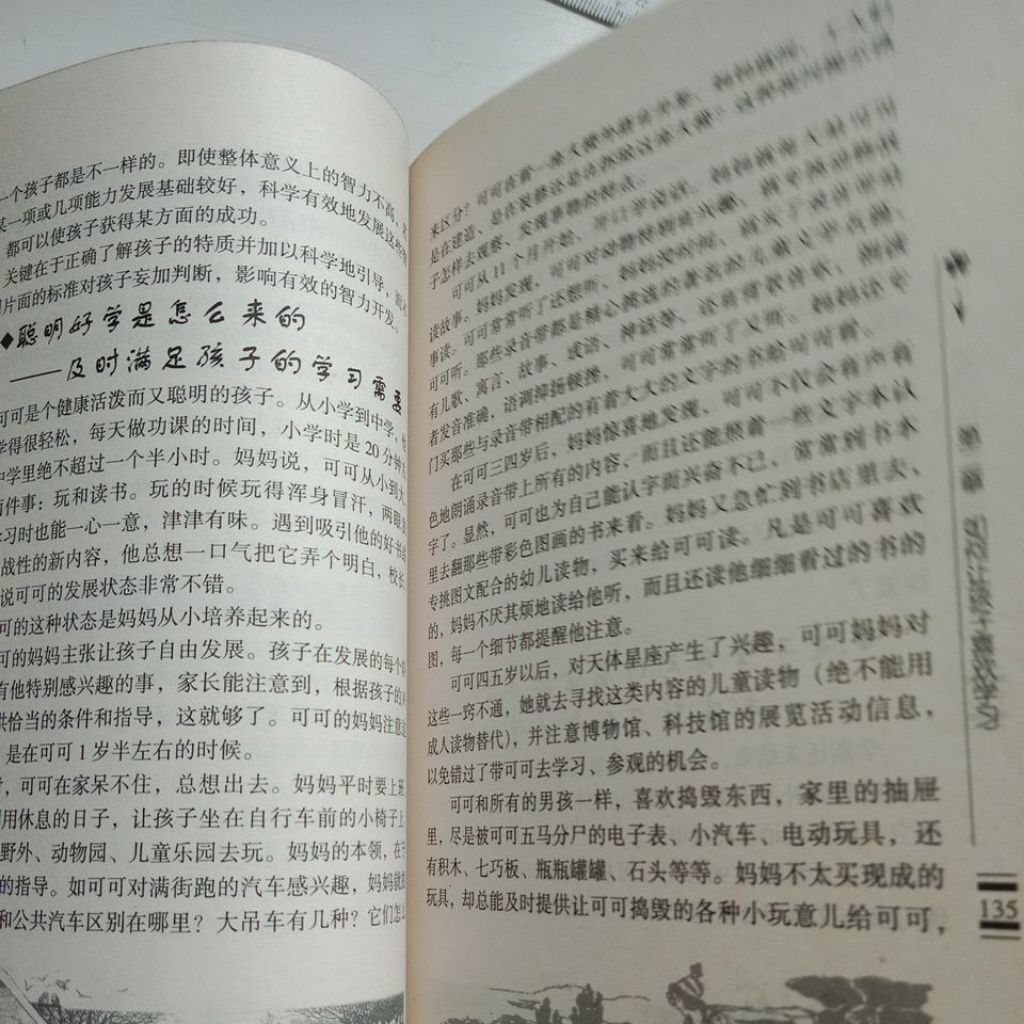 一个孩子都是不一样的。即使整体意义上的智力不高，
一项或几项能力发展基础较好，科学有效地发展这些
都可以使孩子获得某方面的成功。
关键在于正确了解孩子的特质并加以科学地引导，
片面的标准对孩子妄加判断，影响有效的智力开发。
◆聪明好学是怎么来的
——及时满足孩子的学习需要
可可是个健康活泼而又聪明的孩子。从小学到中学，
学得很轻松，每天做功课的时间，小学时是20分钟
中学里绝不超过一个半小时。妈妈说，可可从小到大
两件事：玩和读书。玩的时候玩得浑身冒汗，两眼
学习时也能一心一意，津津有味。遇到吸引他的好书
战性的新内容，他总想一口气把它弄个明白，校长
说可可的发展状态非常不错。
可的这种状态是妈妈从小培养起来的。
可的妈妈主张让孩子自由发展。孩子在发展的每个
有他特别感兴趣的事，家长能注意到，根据孩子的
供恰当的条件和指导，这就够了。可可的妈妈注意
是在可可1岁半左右的时候。
，可可在家呆不住，总想出去。妈妈平时要上班
用休息的日子，让孩子坐在自行车前的小椅子上
野外、动物园、儿童乐园去玩。妈妈的本领，在于
的指导。如可可对满街跑的汽车感兴趣，妈妈就
和公共汽车区别在哪里？大吊车有几种？它们怎么
来区分？可可在看一座大楼
是在建造、是在装修还是在拆
子怎样去观察、发现事物的特点。
可可从11个月开始，牙牙学说话，
读故事。妈妈发现，可可对动物特别感兴趣，
事读。可可常常听了还想听，妈妈没时间，
可可听。那些录音带都是精心挑选的著名的儿童文学
有儿歌、寓言、故事、成语、神话等，
者发音准确，语调抑扬顿挫，可可常常听了又听。妈妈
门买那些与录音带相配的有着大大的文字的书给可可看。
在可可三四岁后，妈妈惊喜地发现，可可不仅会有声有
色地朗诵录音带上所有的内容，而且还能照着一些文字来认
字了。显然，可可也为自己能认字而兴奋不已，常常到书本
里去翻那些带彩色图画的书来看。妈妈又急忙到书店里去，
专挑图文配合的幼儿读物，买来给可可读。凡是可可喜欢
的，妈妈不厌其烦地读给他听，而且还读他细细看过的书的
图，每一个细节都提醒他注意。
可可四五岁以后，对天体星座产生了兴趣，可可妈妈对
这些一窍不通，她就去寻找这类内容的儿童读物（绝不能用
成人读物替代），并注意博物馆、科技馆的展览活动信息，
以免错过了带可可去学习、参观的机会。
可可和所有的男孩一样，喜欢捣毁东西，家里的抽屉
里，尽是被可可五马分尸的电子表、小汽车、电动玩具，还
有积木、七巧板、瓶瓶罐罐、石头等等。妈妈不太买现成的
玩具，却总能及时提供让可可捣毁的各种小玩意儿给可可，
135